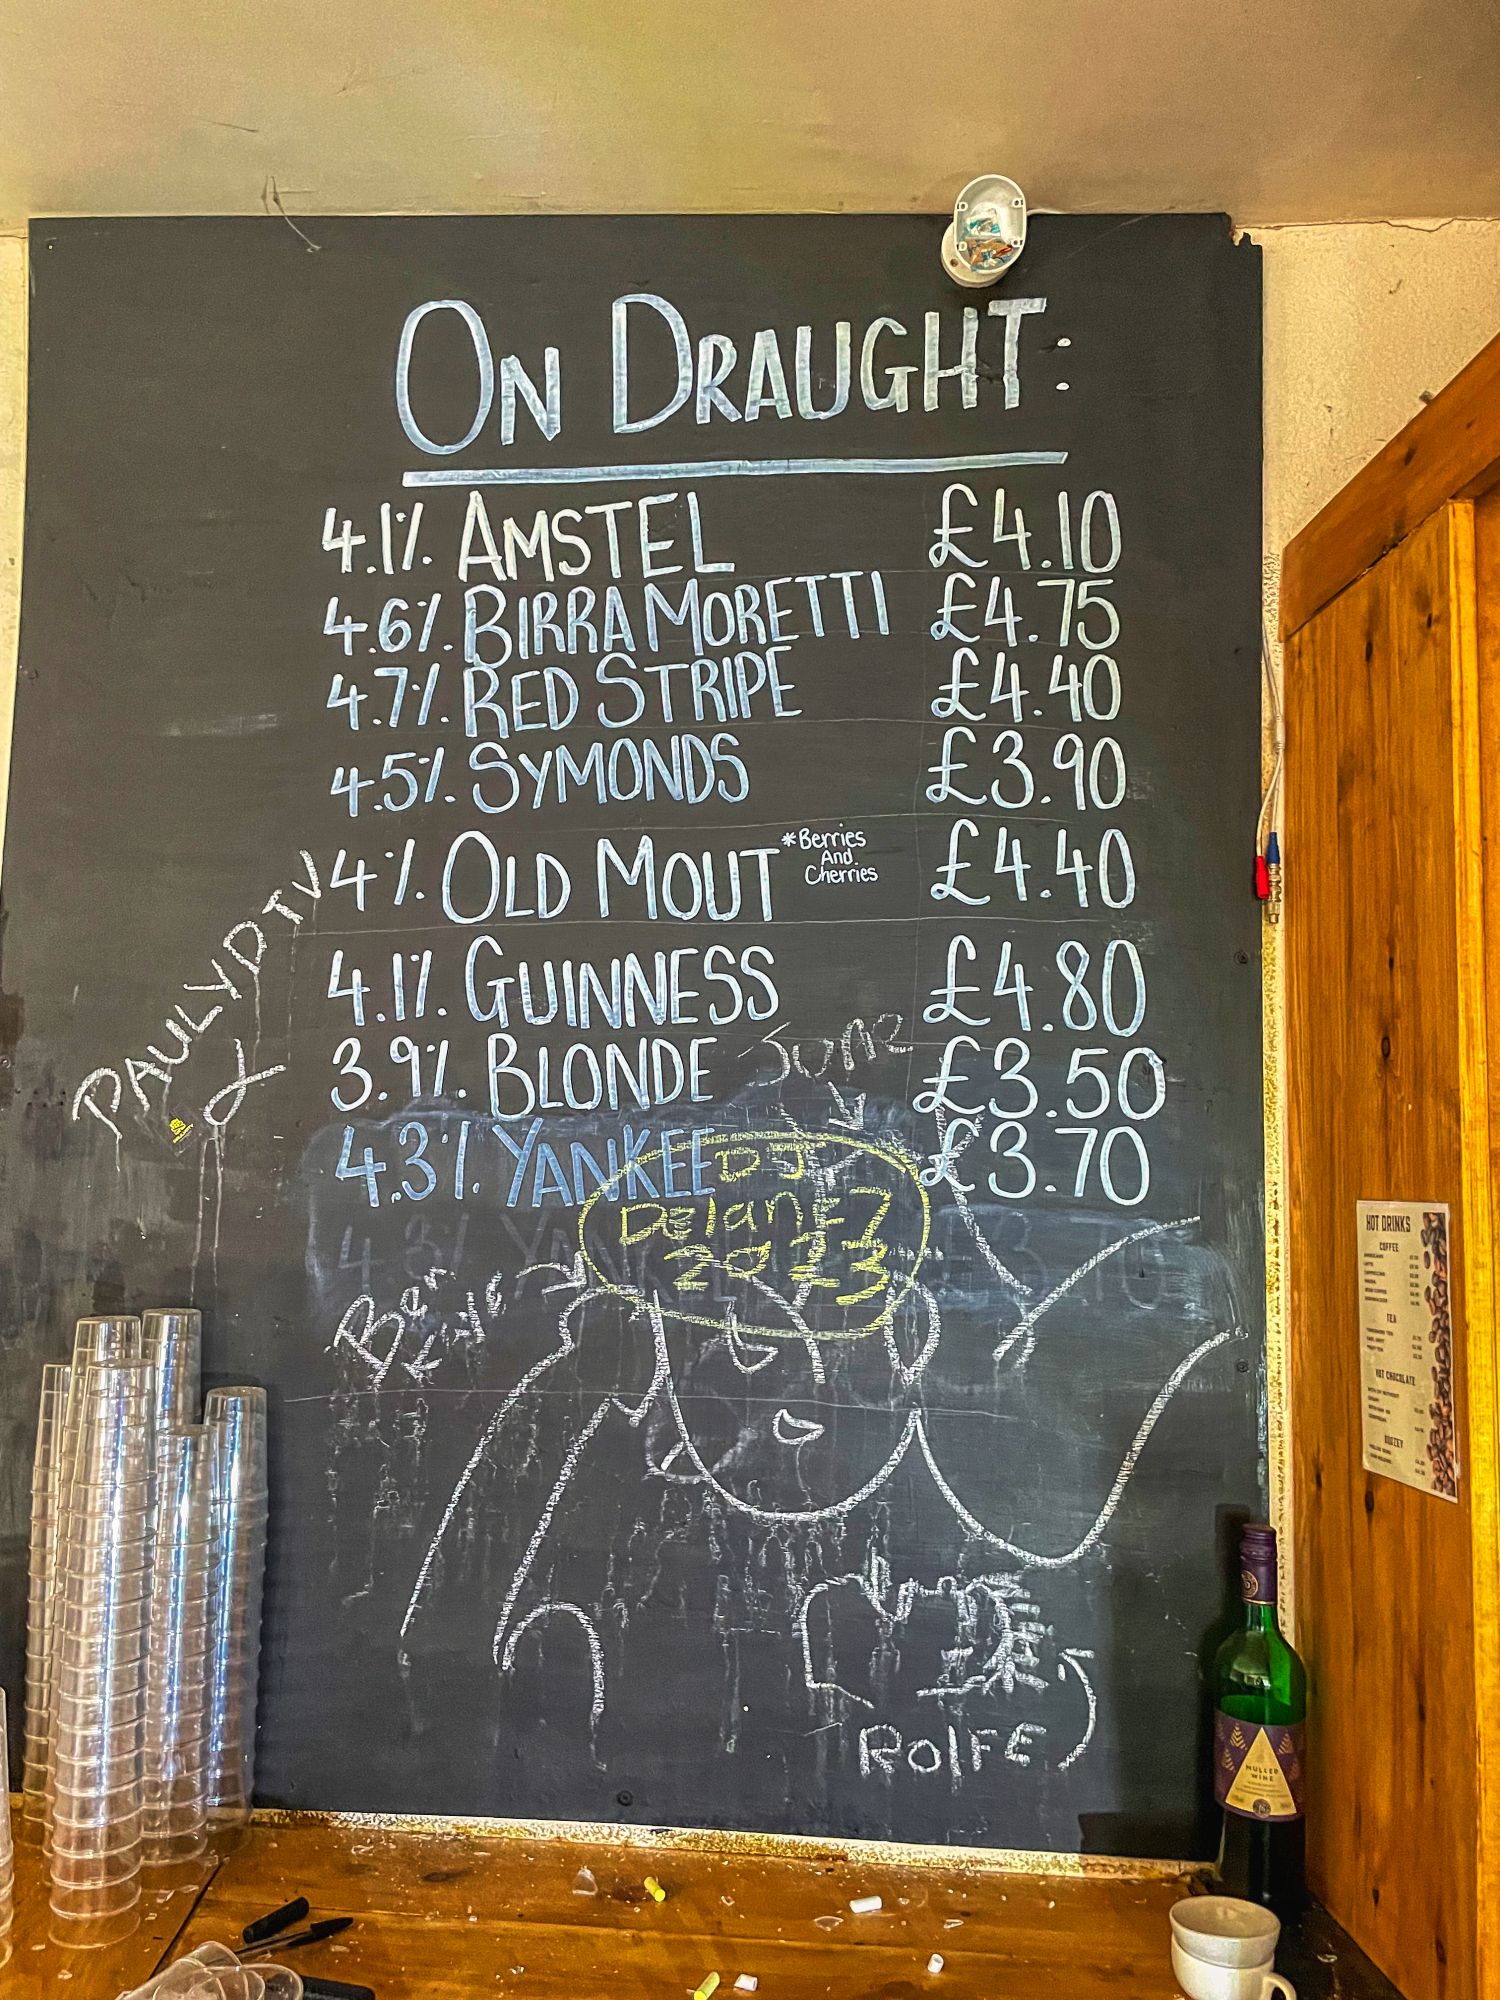 On Draught:
4.1% Amstel £4.10
4.6% Birra Moretti £4.75
4.7% Red Stripe £4.40
4.5% Symonds £3.90
4% Old Mout *Berries And Cherries £4.40
4.1% Guinness £4.80
3.9% Blonde £3.50
4.3% Yankee £3.70
PAULYDTV
June
DJ
DelaneZ
2023
Ben
Kyle
ROLFE
HOT DRINKS
COFFEE
TEA
HOT CHOCOLATE
MULLED
WINE